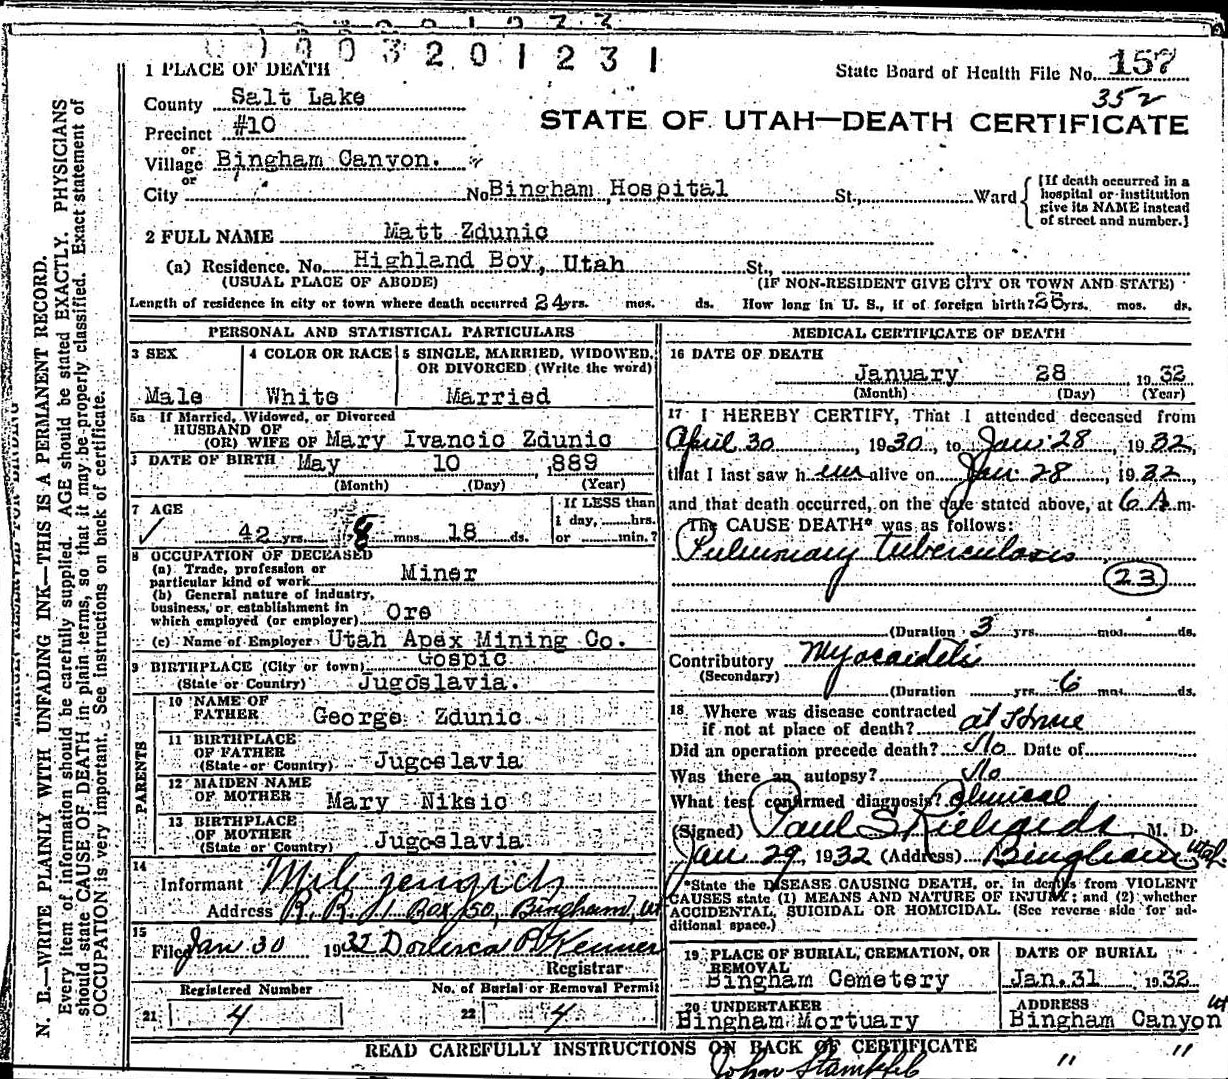 0003201231
1 PLACE OF DEATH
State Board of Health File No. 157
352
County Salt Lake
Precinct #10
STATE OF UTAH—DEATH CERTIFICATE
or
Village Bingham Canyon.
or
City No Bingham Hospital St., Ward
[If death occurred in a hospital or institution give its NAME instead of street and number.]
2 FULL NAME Matt Zdunic
(a) Residence. No. Highland Boy, Utah St.,
(USUAL PLACE OF ABODE) (IF NON-RESIDENT GIVE CITY OR TOWN AND STATE)
Length of residence in city or town where death occurred 24 yrs. mos. ds. How long in U. S., if of foreign birth? yrs. mos. ds.
PERSONAL AND STATISTICAL PARTICULARS
3 SEX
Male
4 COLOR OR RACE
White
5 SINGLE, MARRIED, WIDOWED, OR DIVORCED (Write the word)
Married
5a If Married, Widowed, or Divorced
HUSBAND OF
(OR) WIFE OF Mary Ivancic Zdunic
DATE OF BIRTH May 10 ,889
(Month) (Day) (Year)
7 AGE
42 yrs. 8 mos. 18 ds.
If LESS than
1 day, hrs.
or min.?
8 OCCUPATION OF DECEASED
(a) Trade, profession or
particular kind of work Miner
(b) General nature of industry,
business, or establishment in
which employed (or employer) Ore
(c) Name of Employer Utah Apex Mining Co.
9 BIRTHPLACE (City or town) Gospic
(State or Country) Jugoslavia.
PARENTS
10 NAME OF
FATHER George Zdunic
11 BIRTHPLACE
OF FATHER
(State or Country) Jugoslavia
12 MAIDEN NAME
OF MOTHER Mary Niksic
13 BIRTHPLACE
OF MOTHER
(State or Country) Jugoslavia
14
Informant
Address R. R. 1 Box 50, Bingham, Ut
15
Filed Jan 30 1932
Registrar
Registered Number
21 4
No. of Burial or Removal Permit
22 4
MEDICAL CERTIFICATE OF DEATH
16 DATE OF DEATH
January 28 1932
(Month) (Day) (Year)
17 I HEREBY CERTIFY, That I attended deceased from
April 30, 1930, to Jan. 28, 1932,
that I last saw h im alive on Jan. 28, 1932,
and that death occurred, on the date stated above, at 6 A m.
The CAUSE DEATH* was as follows:
Pulmonary tuberculosis
23
(Duration 3 yrs. mos. ds.
Contributory Myocarditis
(Secondary)
(Duration yrs. 6 mos. ds.
18 Where was disease contracted
if not at place of death? at Home
Did an operation precede death? No Date of
Was there an autopsy? No
What test confirmed diagnosis? Clinical
(Signed) Paul S Richards, M. D.
Jan 29, 1932 (Address) Bingham Utah
*State the DISEASE CAUSING DEATH, or, in deaths from VIOLENT
CAUSES state (1) MEANS AND NATURE OF INJURY; and (2) whether
ACCIDENTAL, SUICIDAL OR HOMICIDAL. (See reverse side for additional space.)
19 PLACE OF BURIAL, CREMATION, OR
REMOVAL
Bingham Cemetery
DATE OF BURIAL
Jan. 31 1932
20 UNDERTAKER
Bingham Mortuary
ADDRESS
Bingham Canyon Ut
READ CAREFULLY INSTRUCTIONS ON BACK OF CERTIFICATE
John " "
MARGIN RESERVED FOR BINDING
N. B.—WRITE PLAINLY WITH UNFADING INK—THIS IS A PERMANENT RECORD.
Every item of information should be carefully supplied. AGE should be stated EXACTLY. PHYSICIANS
should state CAUSE OF DEATH in plain terms, so that it may be properly classified. Exact statement of
OCCUPATION is very important. See instructions on back of certificate.